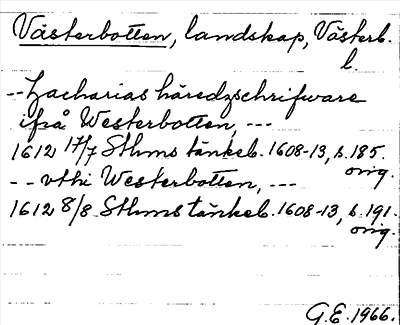 Västerbotten, landskap, Västerb.
l.
-- Zacharias häredzschrifware
ifrå Westerbotten, ---
1612 17/7 Sthms tänkeb. 1608-13, s. 185.
orig.
-- vthi Westerbotten, ---
1612 8/8 Sthms tänkeb. 1608-13, s. 191.
orig.
G.E. 1966.